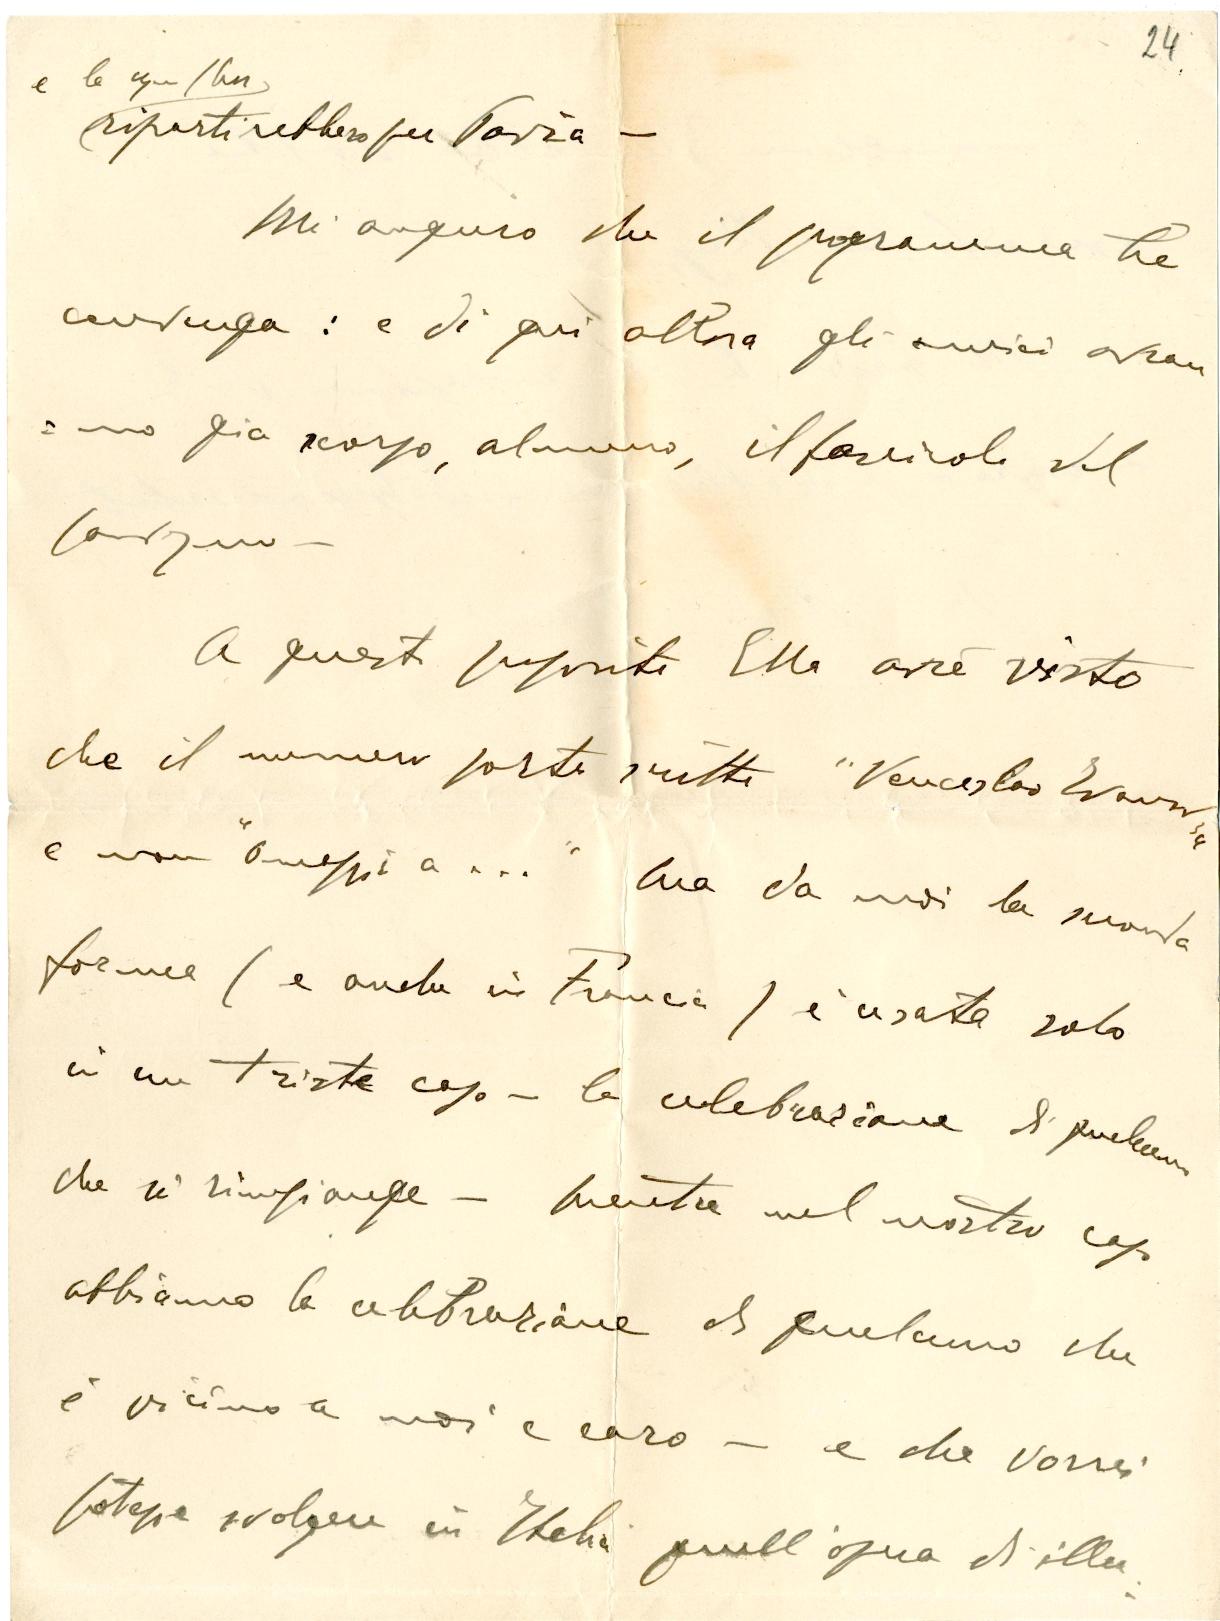 24.
e la
ripartirebbero per Pavia —
Mi auguro che il programma Le
convenga : e di qui allora gli amici avran
= no già scorso, almeno, il fascicolo del
A questo proposito Ella avrà visto
che il numero porta scritto "Venceslao Ivanov"
e non "Omaggio a ..." Ma da noi la seconda
forma ( e anche in Francia ) è usata solo
in un triste caso — la celebrazione di qualcuno
che si rimpiange — mentre nel nostro caso
abbiamo la celebrazione di qualcuno che
è vicino a noi e caro — e che vorrei
potesse svolgere in Italia quell'opera di illu=